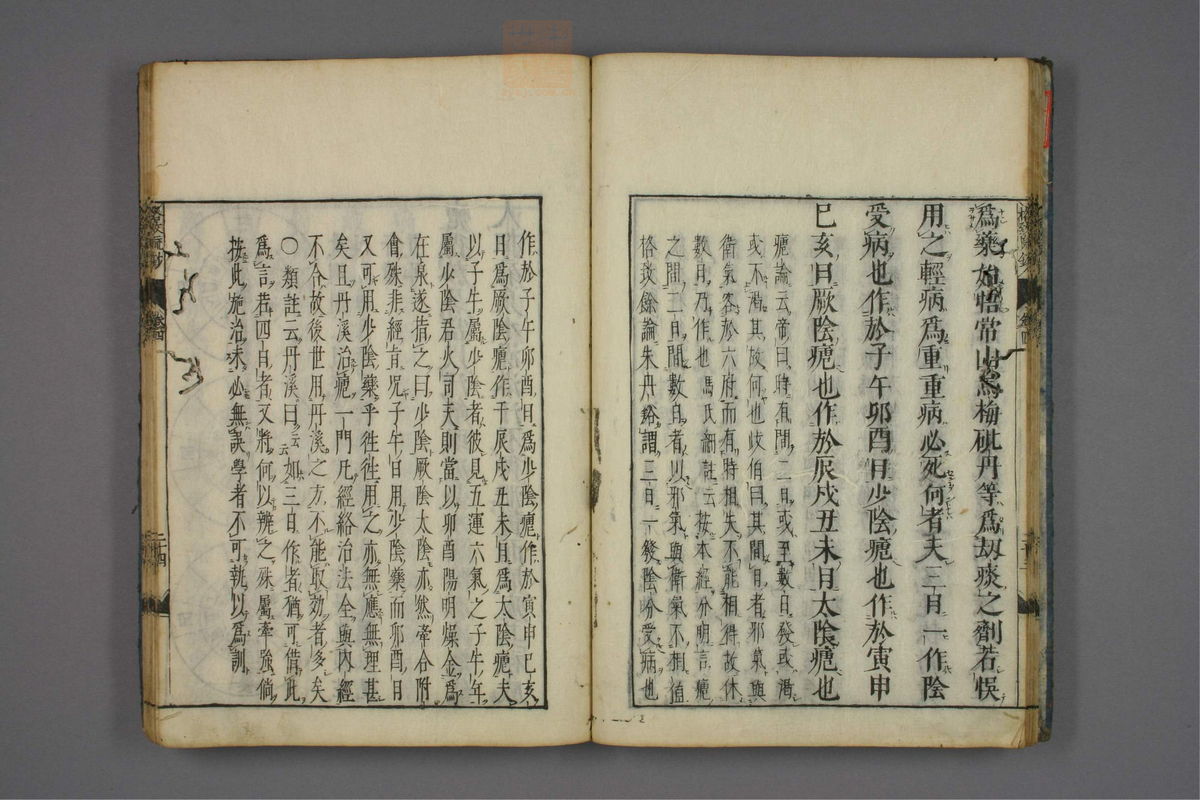 爲藥始悟常山烏梅砒丹等爲刼痰之劑若悞
用之輕病爲重重病必死何者夫三日一作陰
受病也作於子午卯酉日少陰瘧也作於寅申
巳亥日厥陰瘧也作於辰戌丑未日太陰瘧也
瘧論云帝曰時有間二日或至數日發或渴
或不渴其故何也岐伯曰其間日者邪氣與
衛氣客於六府而有時相失不能相得故休
數日乃作也馮氏細註云按本經分明言瘧
之間二日間數日者以邪氣與衛氣不相值
格致餘論朱丹谿謂三日一發陰分受病也
作於子午卯酉日爲少陰瘧作於寅申巳亥
日爲厥陰瘧作于辰戌丑未日爲太陰瘧夫
以子午屬少陰者彼見五運六氣之子午年
屬少陰君火司天則當以卯酉陽明燥金爲
在泉遂指之曰少陰厥陰太陰亦然牽合附
會殊非經旨况子午日用少陰藥而卯酉日
又可用少陰藥乎徃徃用之亦無應無理甚
矣且丹溪治瘧一門凡經絡治法全與内經
不合故後世用丹溪之方不能取効者多矣
○類註云丹溪曰云云如三日作者猶可借此
爲言若四日者又將何以辨之殊屬牽強倘
按此施治未必無誤學者不可執以爲訓